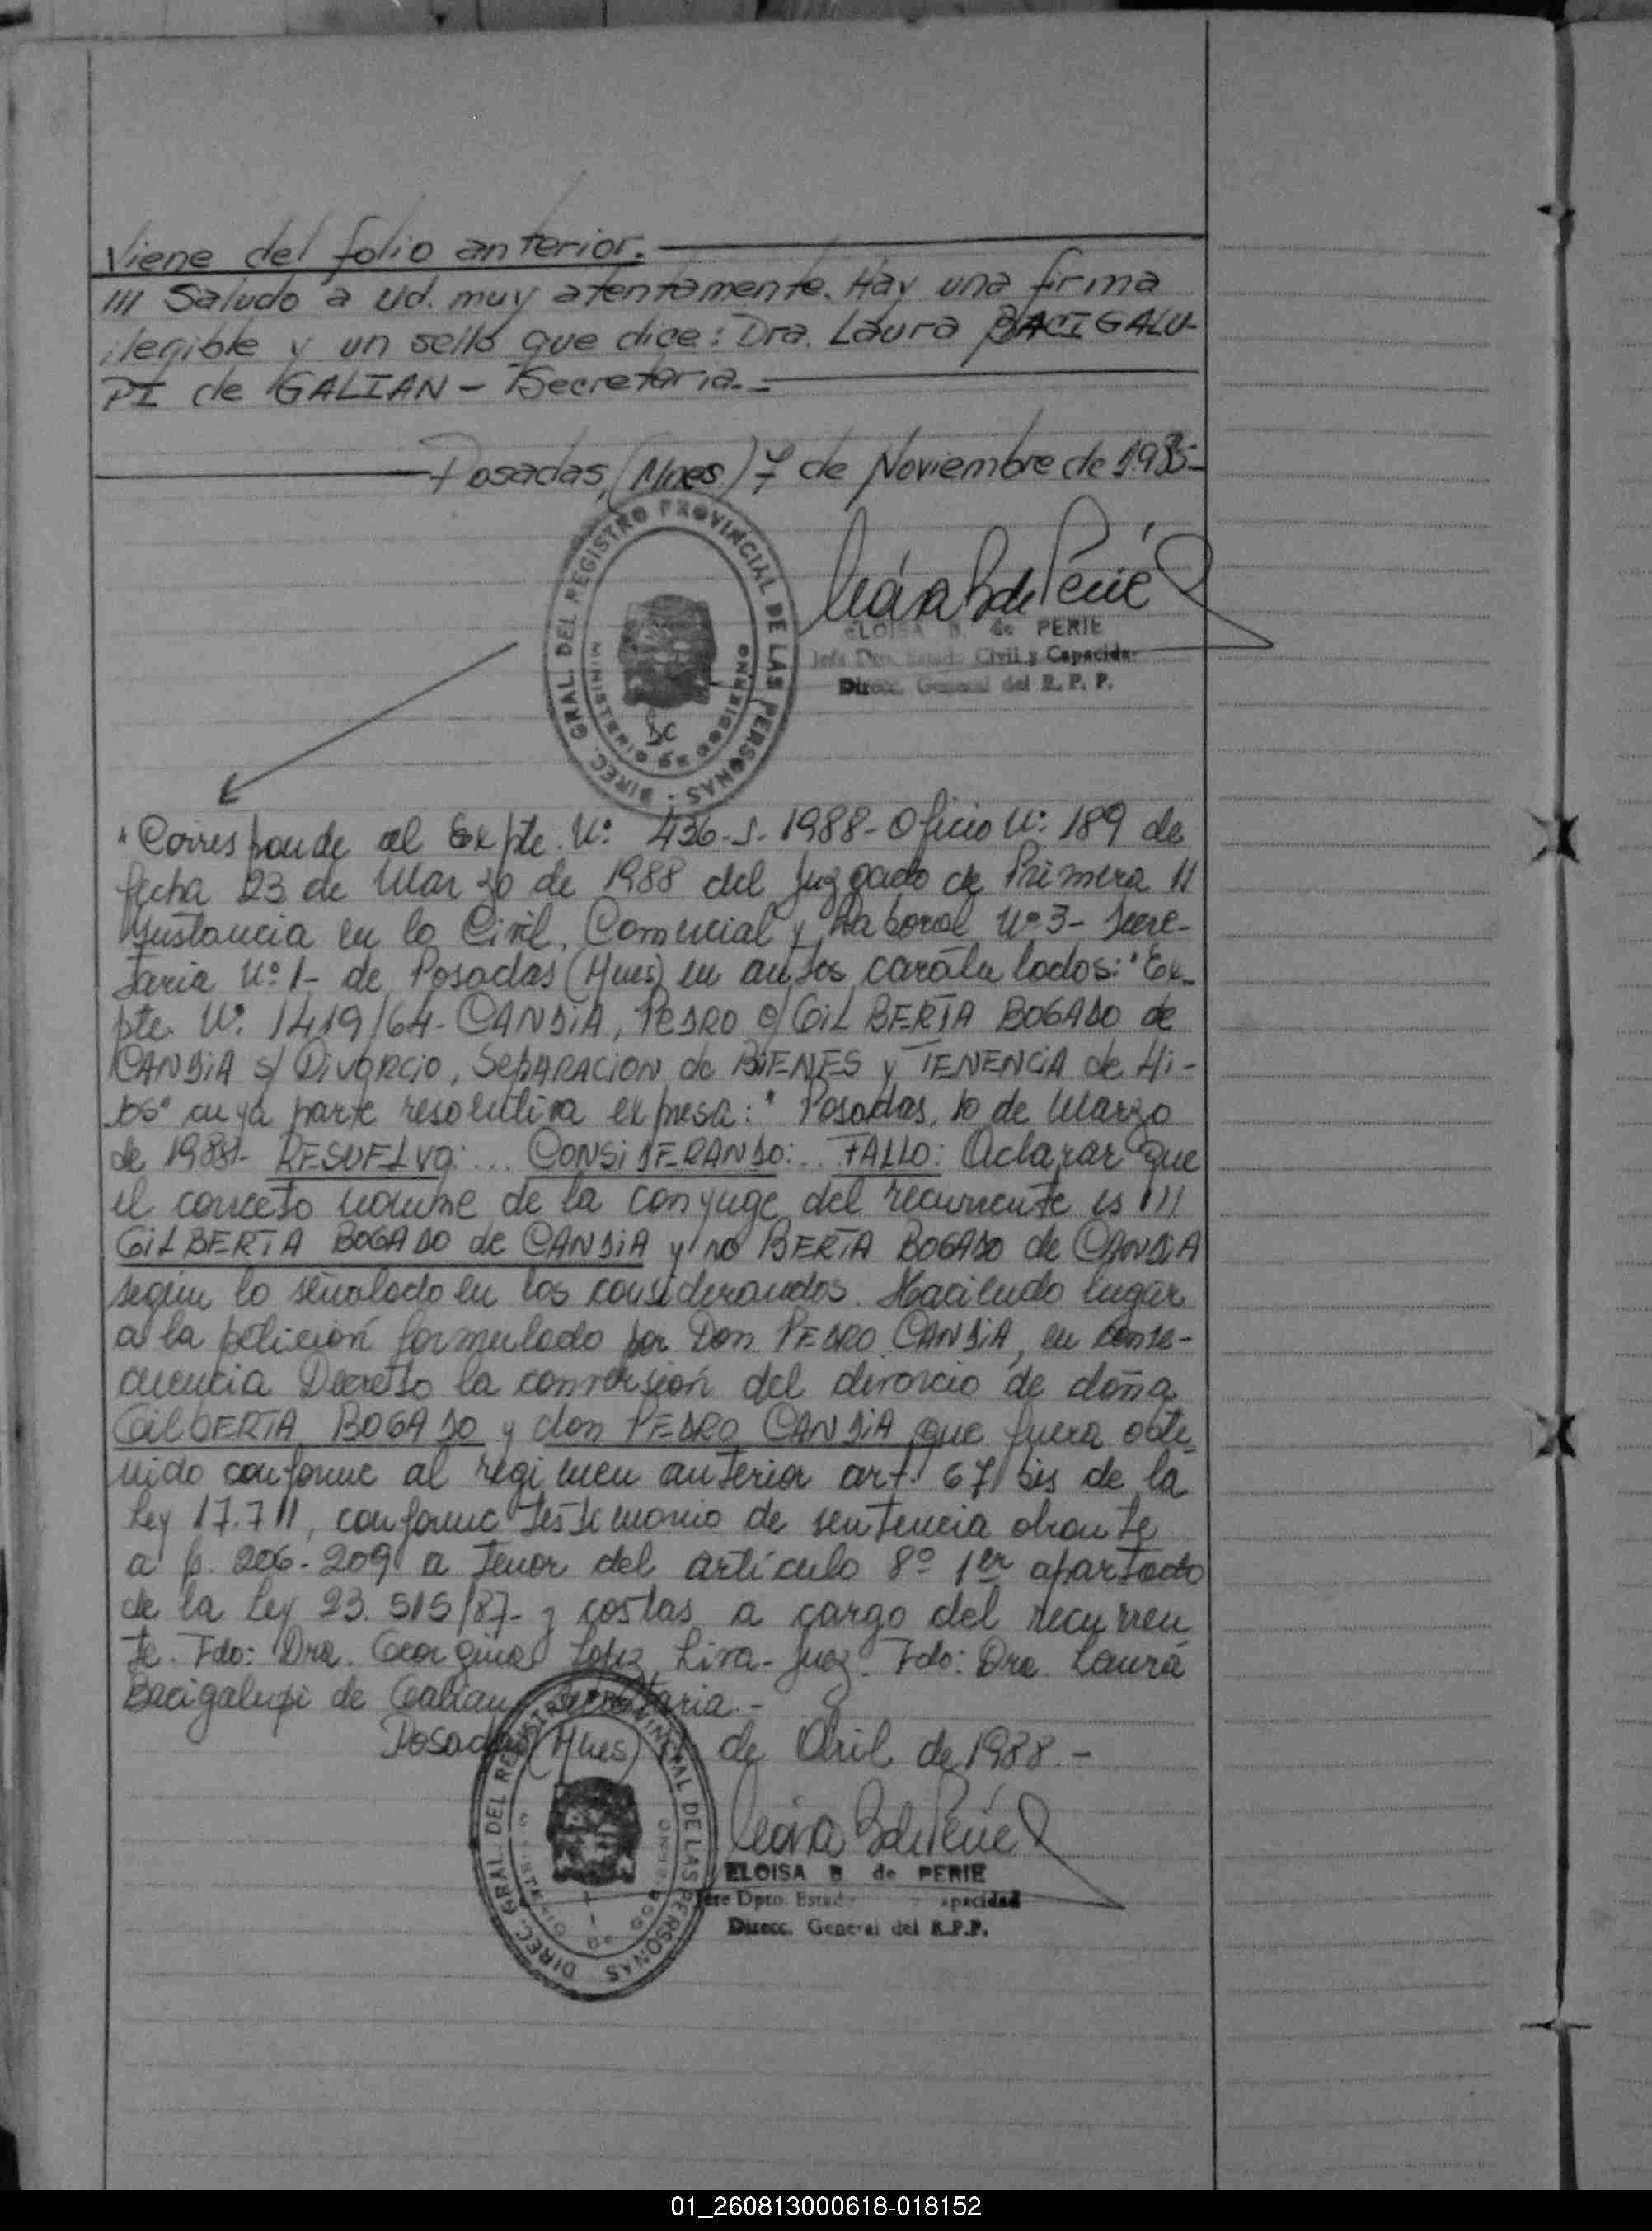 Viene del folio anterior.
/// Saludo a Ud. muy atentamente. Hay una firma
ilegible y un sello que dice: Dra. Laura BACIGALU-
PI de GALIAN - Secretaria.-
Posadas, (Mnes) 7 de Noviembre de
DIREC. GRAL. DEL REGISTRO PROVINCIAL DE LAS PERSONAS -
MINISTERIO DE GOBIERNO
ELOISA B. de PERIE
Jefe Dpto. Estado Civil y Capacidad
Direcc. General del R. P. P.
"Corresponde al Expte. Nº 436-S-1988- Oficio Nº 189 de
fecha 23 de Marzo de 1988 del Juzgado de Primera //
Instancia en lo Civil, Comercial y Laboral Nº 3- Secre-
taria Nº 1- de Posadas (Mnes) en autos caratulados: "Ex-
pte. Nº 1419/64- CANDIA, PEDRO c/ GILBERTA BOGADO de
CANDIA s/ Divorcio, SEPARACION de BIENES y TENENCIA de Hi-
jos" cuya parte resolutiva expresa: " Posadas, 10 de Marzo
de 1988- RESUELVO: ... CONSIDERANDO: .. FALLO: Aclarar que
el correcto nombre de la conyuge del recurrente es ///
GILBERTA BOGADO de CANDIA y no BERTA BOGADO de CANDIA
según lo señalado en los considerandos. Haciendo lugar
a la petición formulado por Don PEDRO CANDIA, en conse-
cuencia Decreto la conversión del divorcio de doña
GILBERTA BOGADO y don PEDRO CANDIA que fuera obte-
nido conforme al regimen anterior art. 67 bis de la
Ley 17.711, conforme testimonio de sentencia obrante
a f. 206-209 a tenor del artículo 8º 1er apartado
de la Ley 23.515/87- y costas a cargo del recurren
te. Fdo: Dra. Georgina Lopez Lira- Juez. Fdo: Dra. Laura
Bacigalupi de Galian, Secretaria.-
Posadas (Mnes) de Abril de 1988.-
DIREC. GRAL. DEL REGISTRO PROVINCIAL DE LAS PERSONAS
MINISTERIO DE GOBIERNO
ELOISA B de PERIE
Jefe Dpto. Estado Capacidad
Direcc. General del R.P.P.
01_260813000618-018152